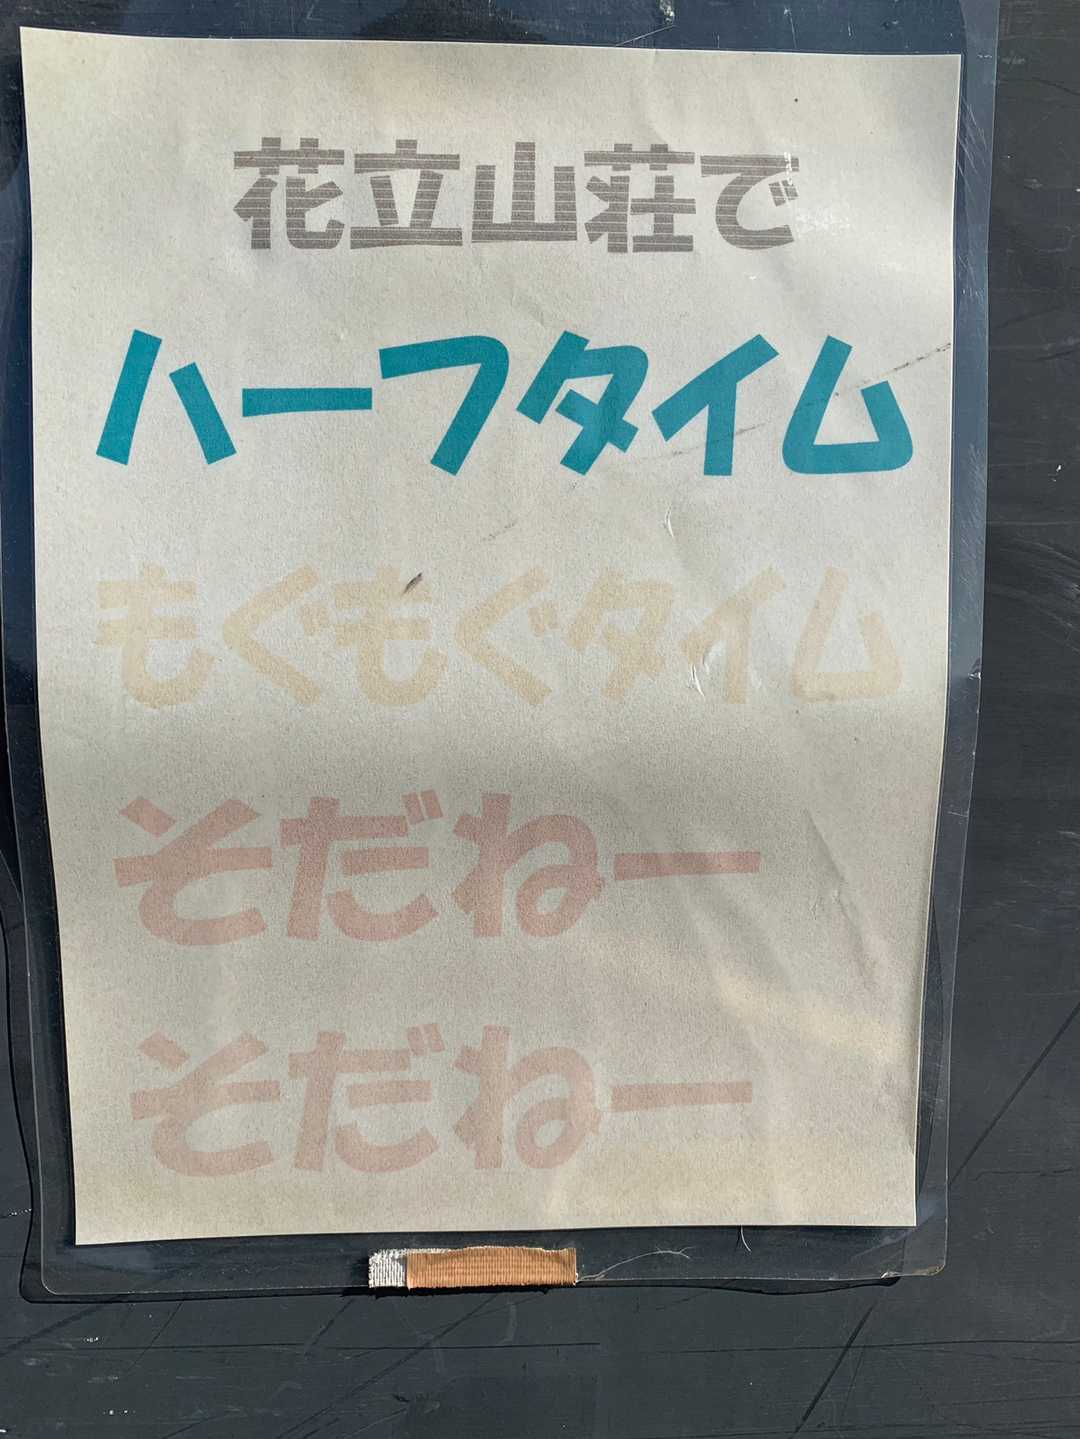 花立山荘で
ハーフタイム
もぐもぐタイム
そだねー
そだねー